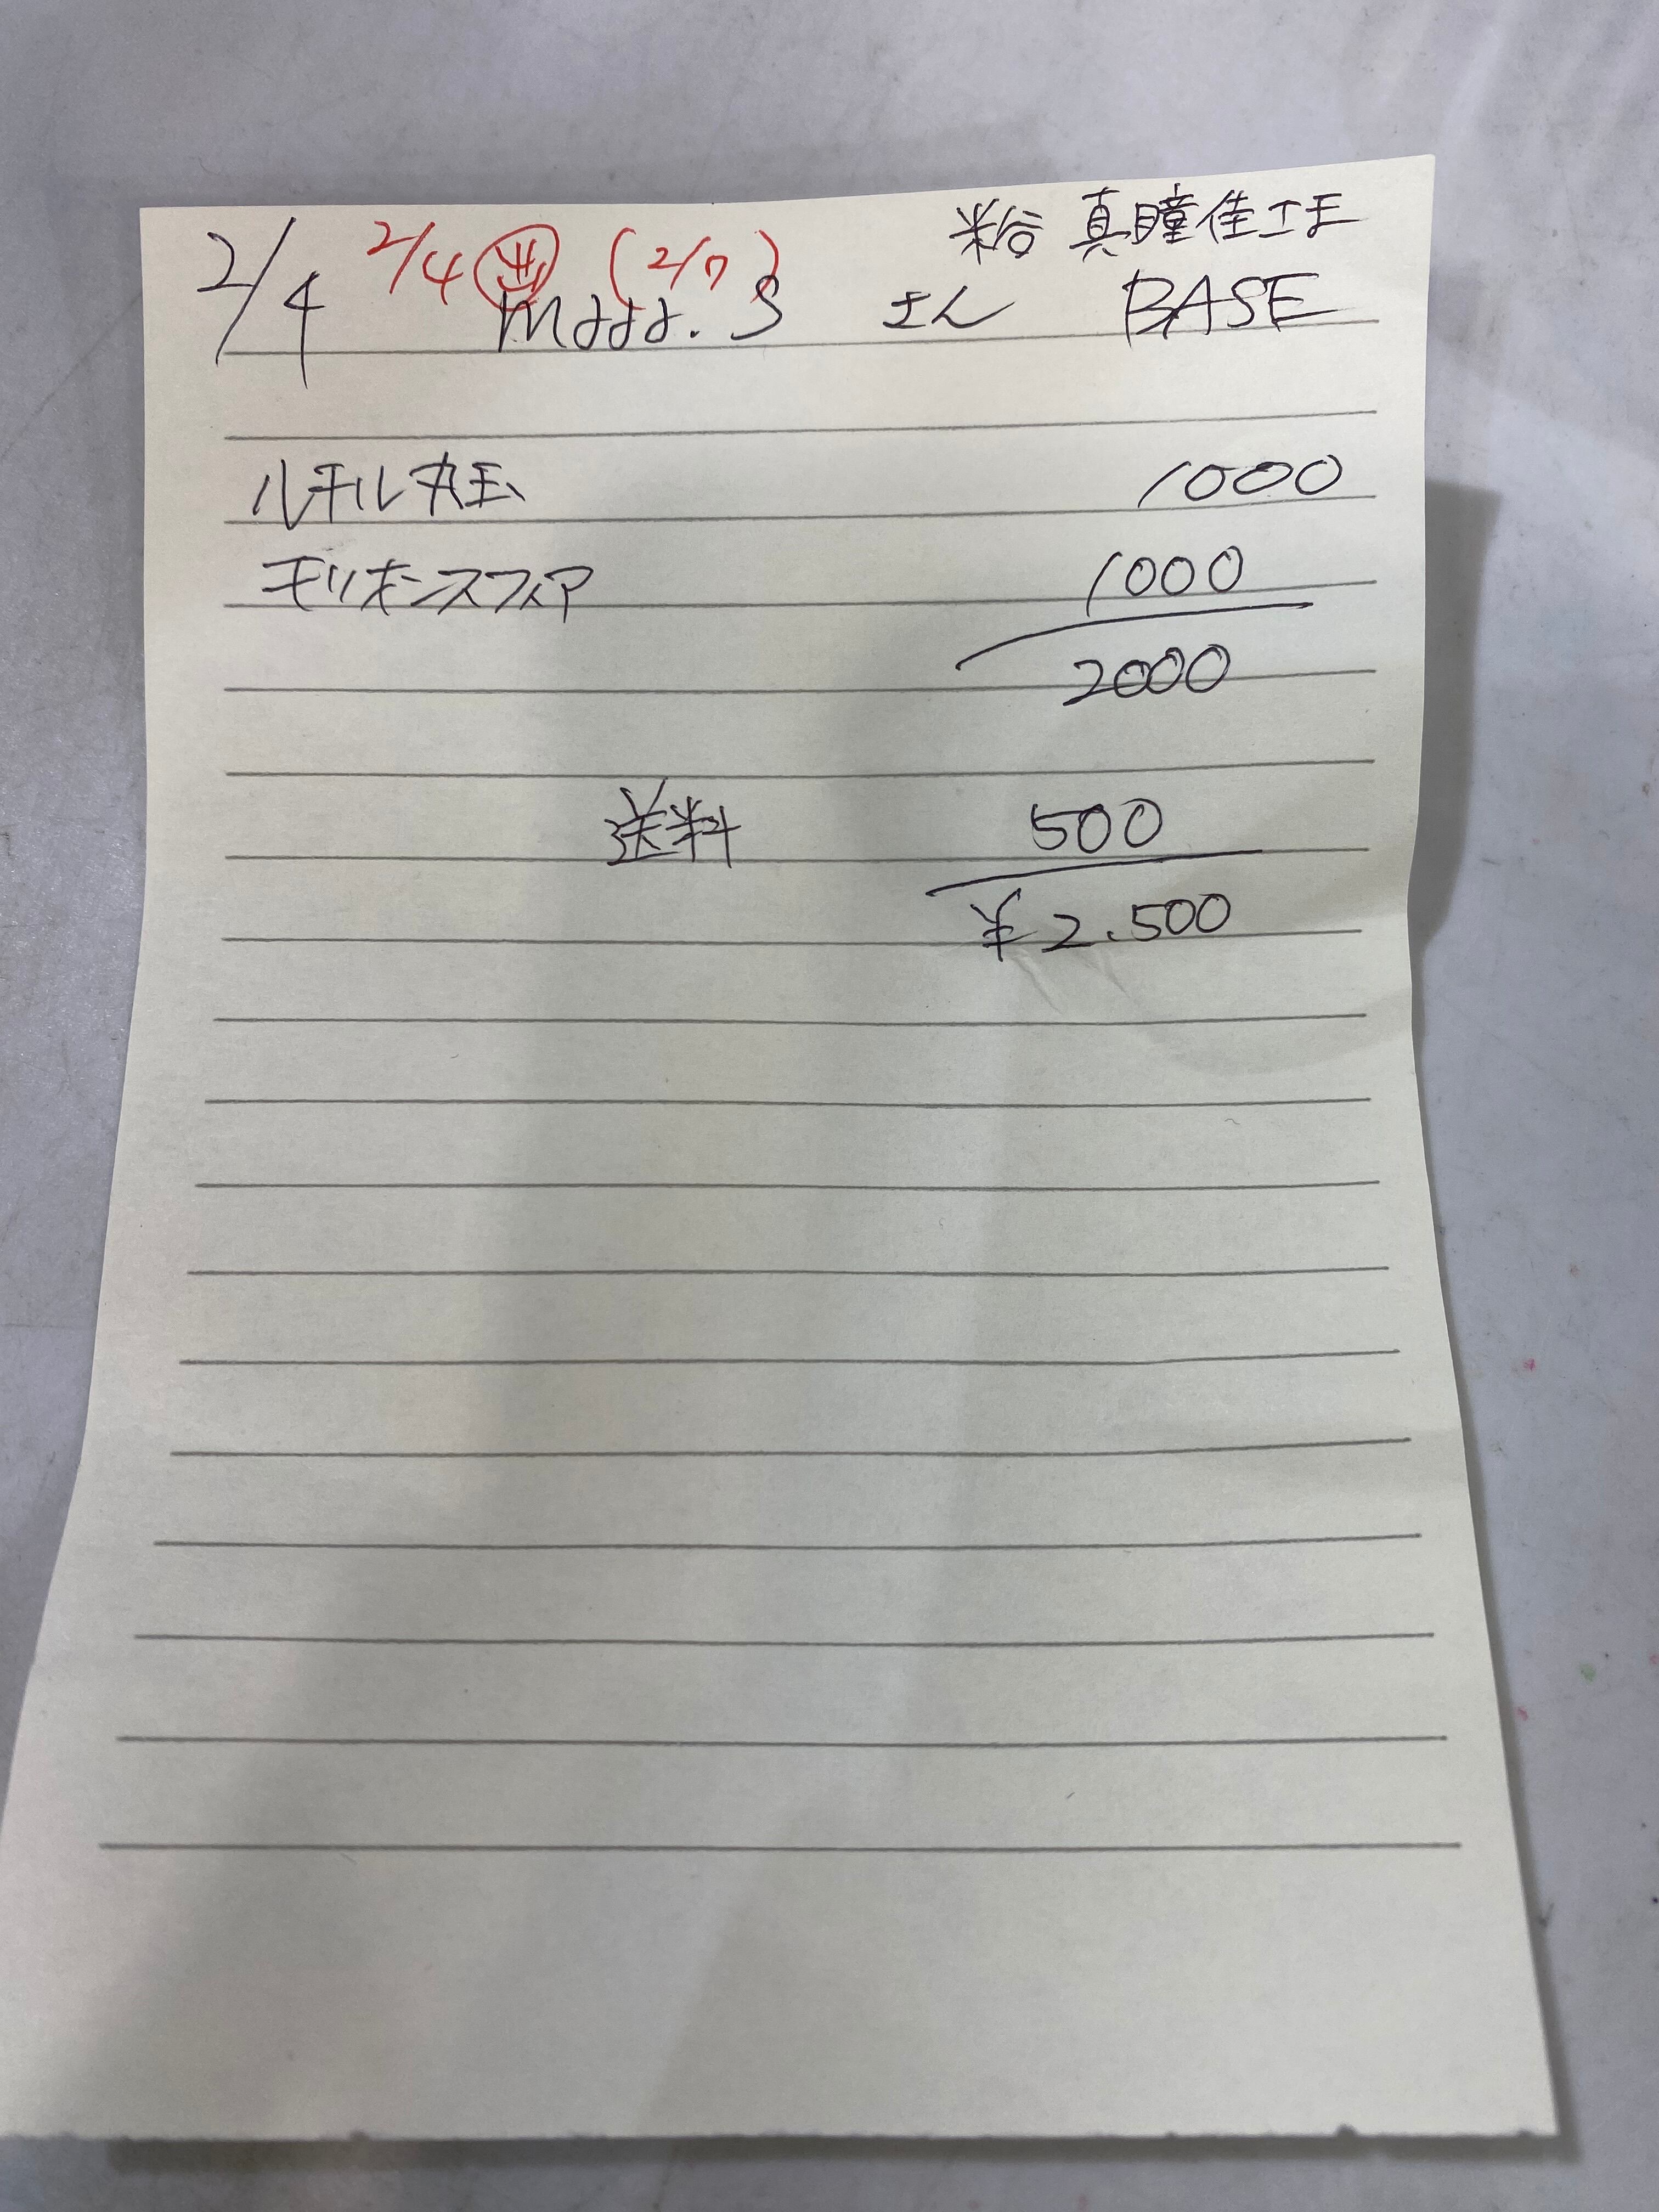 2/4 2/4 (2/7) 粕谷 真瞳佳
さん BASE
ルチル丸玉 1000
モリオンスフィア 1000
2000
送料 500
¥2.500